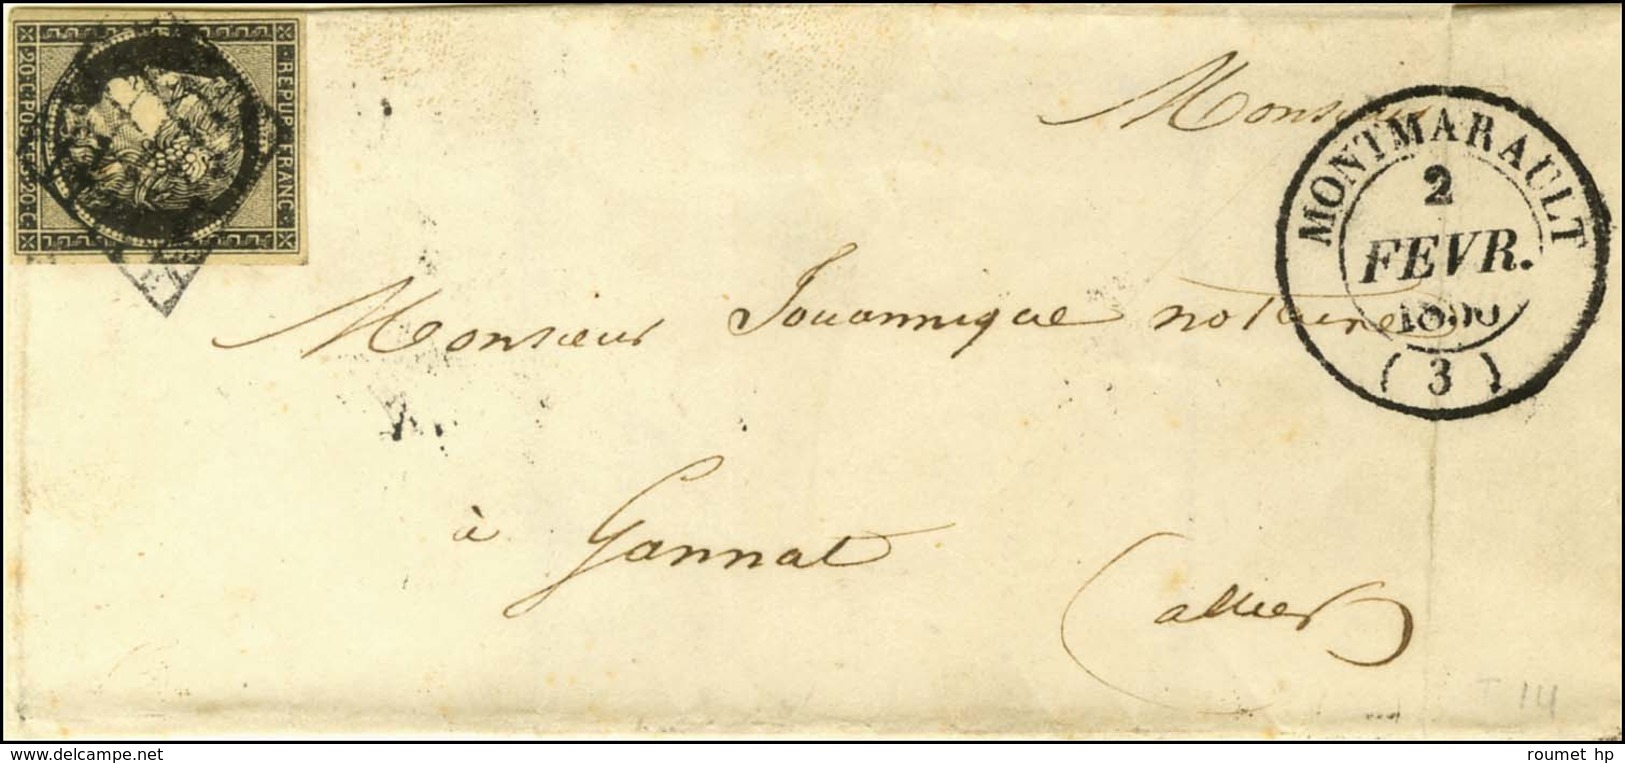 REPUB. FRANC.
20.C.POSTES.20.C
Monsieur
MONTMARAULT
2
FEVR.
1850
(3)
Monsieur Jouannique notaire
à Gannat
(allier)
T 14
www.delcampe.net
roumet hp